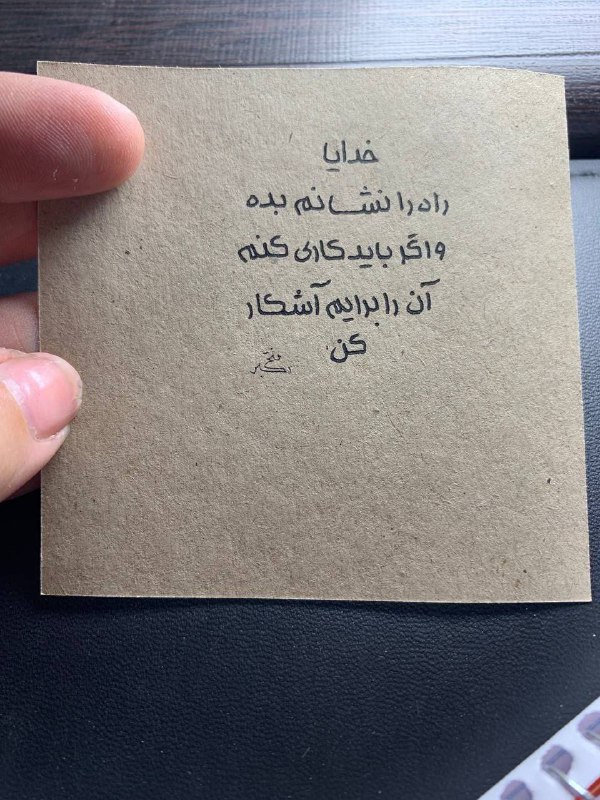 خدایا
راه را نشانم بده
و اگر باید کاری کنم
آن را برایم آشکار
کن